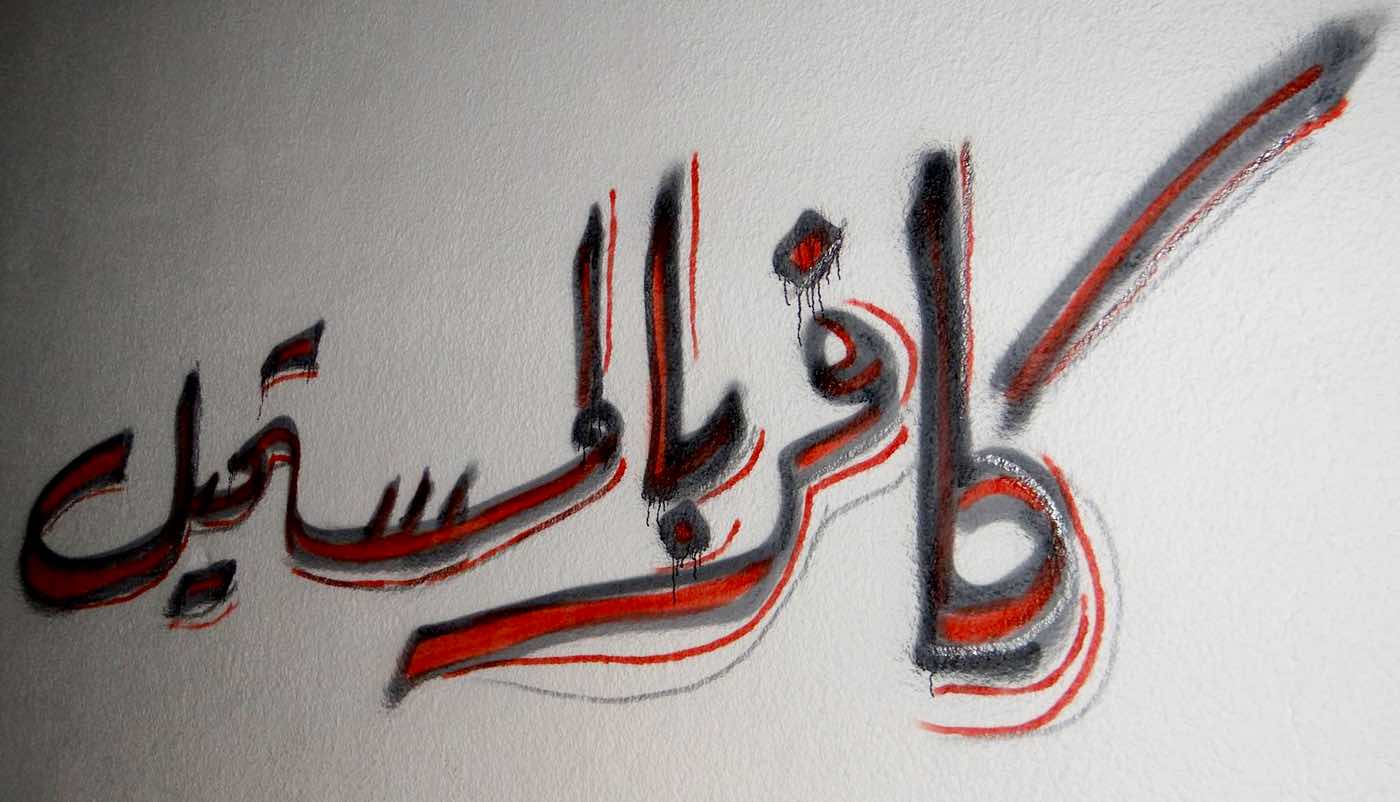 كافر بالمستحيل